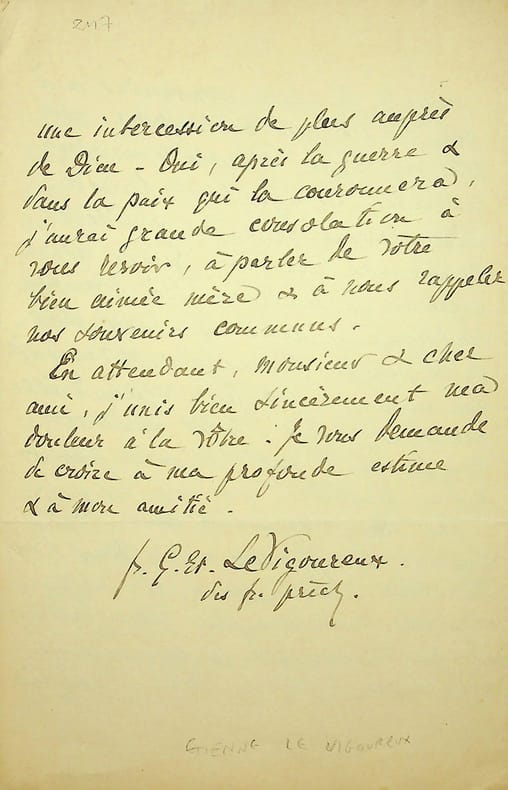 247
une intercession de plus auprès
de Dieu - Oui, après la guerre &
dans la paix qui la couronnera,
j'aurai grande consolation à
vous revoir, à parler de votre
bien aimée mère & à nous rappeler
nos souvenirs communs.
En attendant, Monsieur & cher
ami, j'unis bien sincèrement ma
douleur à la vôtre. Je vous demande
de croire à ma profonde estime
& à mon amitié.
fr. G. Et. Le Vigoureux.
des fr. prêch.
ETIENNE LE VIGOUREUX